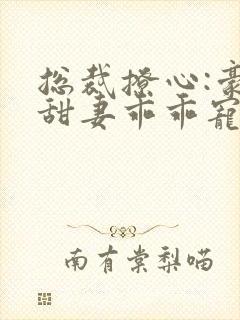 总裁撩心:豪
甜妻乖乖宠
南有棠梨喵